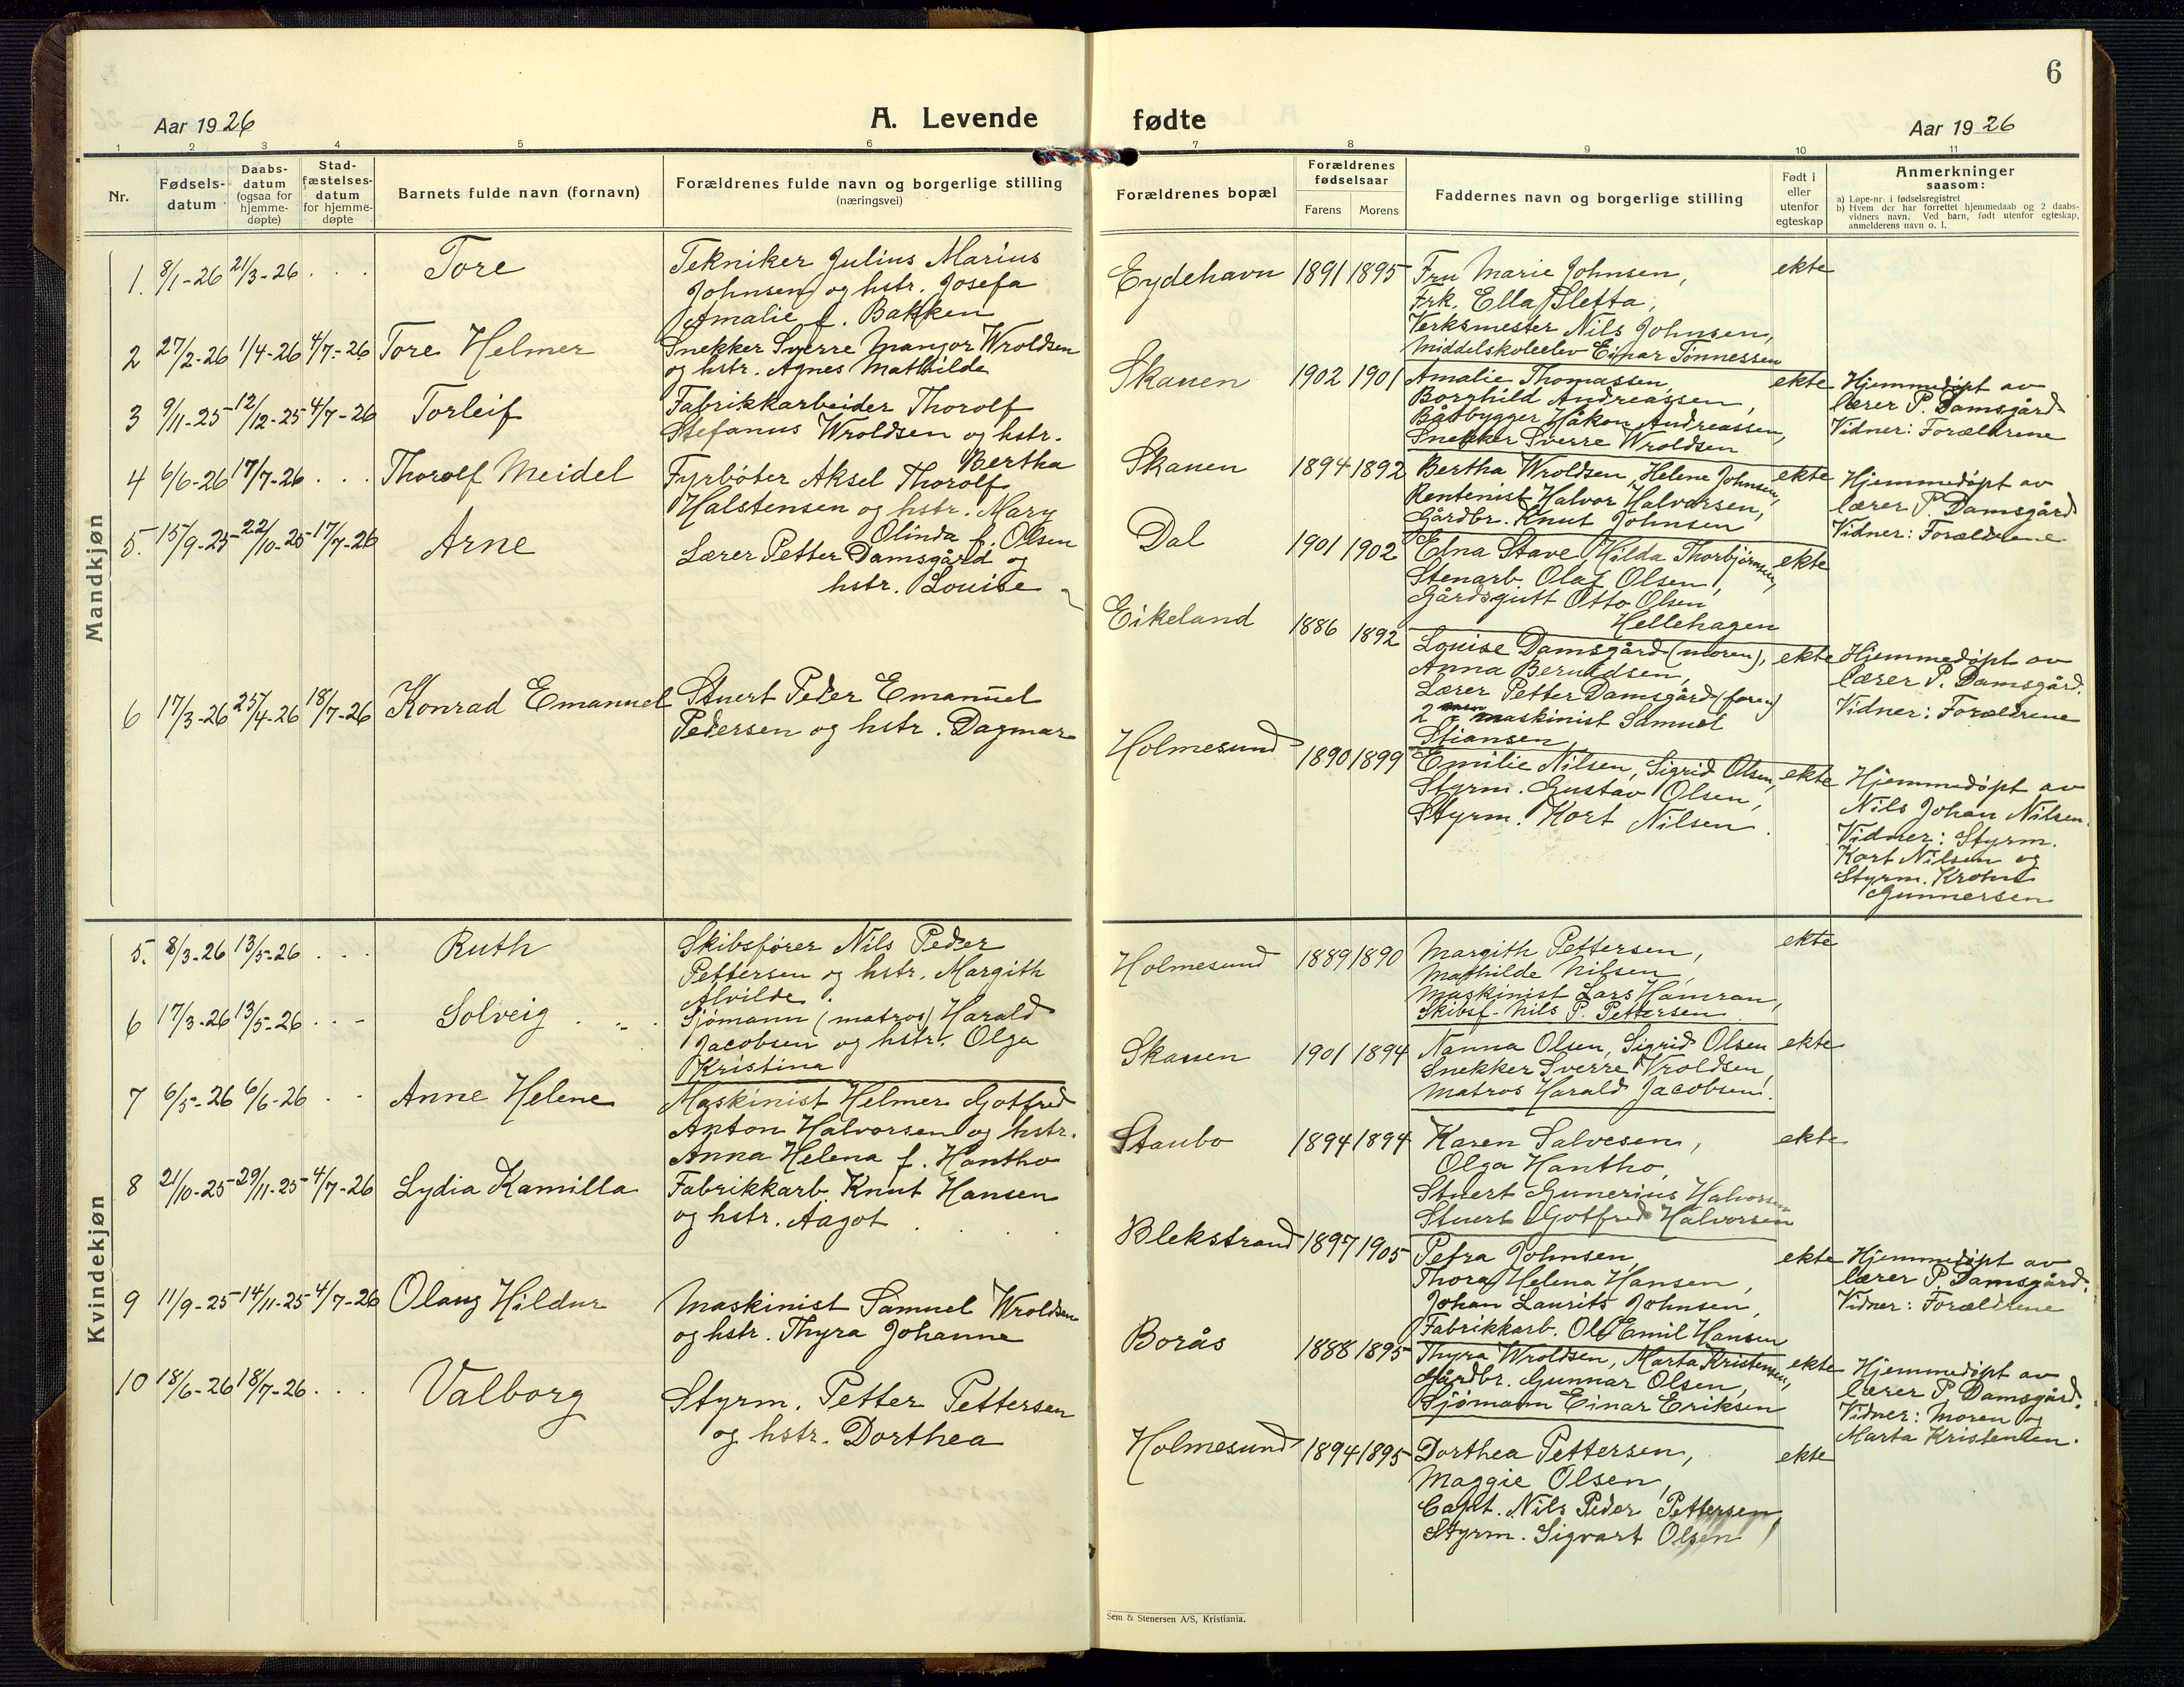 6
Aar 1926
A. Levende fødte
Aar 1926
1 2 3 4 5 6 7 8 9 10 11
Nr.
Fødsels-
datum
Daabs-
datum
(ogsaa for
hjemme-
døpte)
Stad-
fæstelses-
datum
for hjemme-
døpte
Barnets fulde navn (fornavn)
Forældrenes fulde navn og borgerlige stilling
(næringsvei)
Forældrenes bopæl
Forældrenes
fødselsaar
Farens Morens
Faddernes navn og borgerlige stilling
Født i
eller
utenfor
egteskap
Anmerkninger
saasom:
a) Løpe-nr. i fødselsregistret
b) Hvem der har forrettet hjemmedaab og 2 daabs-
vidners navn. Ved barn, født utenfor egteskap,
anmelderens navn o. l.
Mandkjøn
1. 8/1-26 21/3-26 . . .
Tore
Tekniker Julius Marius
Johnsen og hstr. Josefa
Amalie f. Bakken
Eydehavn 1891 1895
Fru Marie Johnsen,
Frk. Ella Sletta,
Verksmester Nils Johnsen,
Middelskoleelev Einar Tønnessen
ekte
2 27/2-26 1/4-26 4/7-26
Tore Helmer
Snekker Sverre Mangor Wroldsen
og hstr. Agnes Mathilde
Skauen 1902 1901
Amalie Thomassen,
Borghild Andreassen,
Båtbygger Håkon Andreassen,
Snekker Sverre Wroldsen
ekte
Hjemmedøpt av
lærer P. Damsgård
Vidner: Forældrene
3 9/11-25 12/12-25 4/7-26
Torleif
Fabrikkarbeider Thorolf
Stefanus Wroldsen og hstr.
Bertha
Skauen 1894 1892
Bertha Wroldsen, Helene Johnsen,
Rentenist Halvor Halvorsen,
Gårdbr. Knut Johnsen
ekte
Hjemmedøpt av
lærer P. Damsgård
Vidner: Forældrene
4 6/6-26 17/7-26 . . .
Thorolf Meidel
Fyrbøter Aksel Thorolf
Halstensen og hstr. Mary
Olinda f. Olsen
Dal 1901 1902
Elna Stave, Hilda Thorbjørnsen,
Stenarb. Olaf Olsen,
Gårdsgutt Otto Olsen
Hellehagen
ekte
5. 15/9-25 22/10-25 17/7-26
Arne
Lærer Petter Damsgård og
hstr. Louise
Eikeland 1886 1892
Louise Damsgård (moren),
Anna Berntdsen,
Lærer Petter Damsgård (faren)
2 maskinist Samuel
Stiansen
ekte
Hjemmedøpt av
lærer P. Damsgård.
Vidner: Forældrene
6 17/3-26 25/4-26 18/7-26
Konrad Emanuel
Stuert Peder Emanuel
Pedersen og hstr. Dagmar
Holmesund 1890 1899
Emilie Nilsen, Sigrid Olsen,
Styrm. Gustav Olsen,
Styrm. Kort Nilsen.
ekte
Hjemmedøpt av
Nils Johan Nilsen.
Vidner: Styrm.
Kort Nilsen og
Styrm.
Gunnersen
Kvindekjøn
5. 8/3-26 13/5-26 . . .
Ruth
Skibsfører Nils Peder
Pettersen og hstr. Margith
Alvilde.
Holmesund 1889 1890
Margith Pettersen,
Mathilde Nilsen,
Maskinist Lars Hamran,
Skibsf. Nils P. Pettersen
ekte
6 17/3-26 13/5-26 . . -
Solveig
Sjømann (matros) Harald
Jacobsen og hstr. Olga
Kristina
Skauen 1901 1894
Nanna Olsen, Sigrid Olsen
Snekker Sverre Wroldsen,
Matros Harald Jacobsen.
ekte
7 6/5-26 6/6-26 . .
Anne Helene
Maskinist Helmer Gotfred
Anton Halvorsen og hstr.
Anna Helena f. Hantho
Staubo 1894 1894
Karen Salvesen,
Olga Hantho,
Stuert Gunerius Halvorsen
Stuert Gotfred Halvorsen
ekte
8 21/10-25 29/11-25 4/7-26
Lydia Kamilla
Fabrikkarb. Knut Hansen
og hstr. Aagot
Blekstrand 1897 1905
Petra Johnsen,
Thora Helena Hansen,
Johan Laurits Johnsen,
Fabrikkarb. Ole Emil Hansen
ekte
Hjemmedøpt av
lærer P. Damsgård.
Vidner: Forældrene
9 11/9-25 14/11-25 4/7-26
Olaug Hildur
Maskinist Samuel Wroldsen
og hstr. Thyra Johanne
Borås 1888 1895
Thyra Wroldsen, Marta Kristensen,
Gårdbr. Gunnar Olsen,
Sjømann Einar Eriksen
ekte
Hjemmedøpt av
lærer P. Damsgård.
Vidner: Moren og
Marta Kristensen.
10 18/6-26 18/7-26 . . .
Valborg
Styrm. Petter Pettersen
og hstr. Dorthea
Holmesund 1894 1895
Dorthea Pettersen,
Maggie Olsen,
Capt. Nils Peder Pettersen,
Styrm. Sigvart Olsen
ekte
Sem & Stenersen A/S, Kristiania.